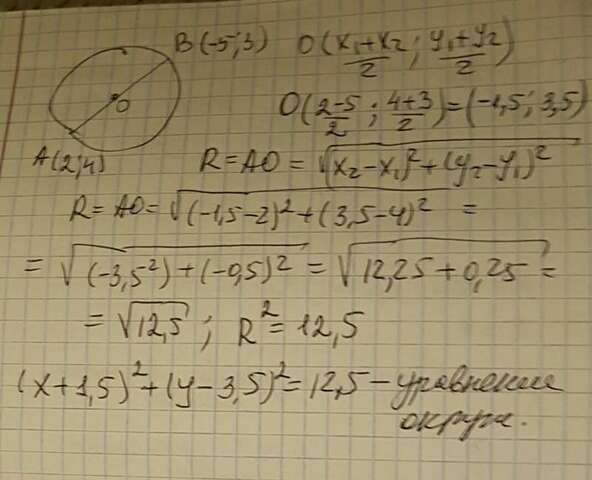 B(-5;3) O(x₁+x₂/2 ; y₁+y₂/2)
O
O(2-5/2 ; 4+3/2)=(-1,5; 3,5)
A(2;4) R=AO=√(x₂-x₁)²+(y₂-y₁)²
R=AO=√(-1,5-2)²+(3,5-4)² =
=√(-3,5²)+(-0,5)² =√12,25+0,25 =
=√12,5 ; R²=12,5
(x+1,5)²+(y-3,5)²=12,5-уравнение
окружн.